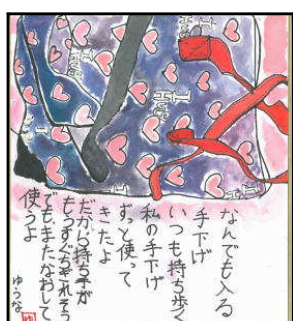 なんでも入る
手下げ
いつも持ち歩く
私の手下げ
ずっと使って
きたよ
だから持ち手が
もうすぐちぎれそう
でもまたなおして
使うよ
ゆうな